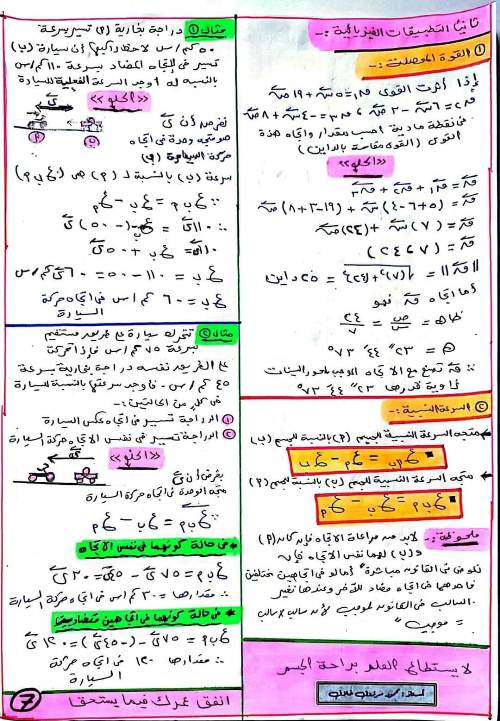 ثانيًا التطبيقات الفيزيائية :-
① القوة المحصلة :-
إذا أثرت القوى ق١ = ٥ س + ١٩ ص
ق٢ = ٦ س - ٣ ص ، ق٣ = -٤ س + ٨ ص
فى نقطة مادية احسب مقدار واتجاه هذة
القوى (القوى مقاسة بالداين)
«الحلو»
ق = ق١ + ق٢ + ق٣
ق = (٥+٦-٤) س + (١٩-٣+٨) ص
ق = (٧) س + (٢٤) ص
ق = (٧ ، ٢٤)
|| ق || = √(٧)² + (٢٤)² = ٢٥ داين
أما اتجاه ق فهو
ظا هـ = ص/س = ٢٤/٧
هـ = ٢٣ ً ٤٤ َ ٧٣ ْ
∴ ق تصنع مع الاتجاه الموجب لمحور السينات
زاوية قدرها ٢٣ ً ٤٤ َ ٧٣ ْ
② السرعة النسبية :-
متجه السرعة النسبية للجسم (م) بالنسبة للجسم (ب)
ع م ب = ع م - ع ب
متجه السرعة النسبية للجسم (ب) بالنسبة للجسم (م)
ع ب م = ع ب - ع م
ملحوظة :- لابد من مراعاة الاتجاه فإن كان (م)
و (ب) لهما نفس الاتجاه فإن
نعوض فى القانون مباشرة، أما لو فى اتجاهين مختلفين
فأحدهما فى اتجاه مضاد للآخر وعندها نغير
السالب فى القانون لموجب لأن سالب × سالب
= موجب "
لا يستطاع العلم براحة الجسر
مثال ① دراجة بخارية (م) تسير بسرعة
٥٠ كم/س لاحظ راكبها أن سيارة (ب)
تسير فى الاتجاه المضاد بسرعة ١١٠ كم/س
بالنسبة له أوجد السرعة الفعلية للسيارة
«الحلو»
نفرض أن ى
هو متجه وحدة فى اتجاه
حركة السيارة (ب)
سرعة (ب) بالنسبة لـ (م) هى (ع ب م)
∴ ع ب م = ع ب - ع م
∴ ١١٠ ى = ع ب - (-٥٠) ى
١١٠ ى = ع ب + ٥٠ ى
ع ب = ١١٠ - ٥٠ = ٦٠ ى كم/س
ع ب = ٦٠ كم/س فى اتجاه حركة
السيارة
مثال ② تتحرك سيارة على طريق مستقيم
بسرعة ٧٥ كم/س فإذا تحركت
على الطريق نفسه دراجة بخارية بسرعة
٤٥ كم/س - فأوجد سرعتها بالنسبة للسيارة
فى كل من الحالتين :-
① الدراجة تسير فى اتجاه عكس السيارة
② الدراجة تسير فى نفس الاتجاه حركة السيارة
«الحلو»
بفرض أن ى
متجه الوحدة فى اتجاه حركة السيارة
∴ ع ب م = ع ب - ع م
فى حالة كونهما فى نفس الاتجاه
ع ب م = ٧٥ ى - ٤٥ ى = ٣٠ ى
∴ مقدارها = ٣٠ كم/س فى اتجاه حركة السيارة
فى حالة كونهما فى اتجاهين متضادين
ع ب م = ٧٥ ى - (-٤٥ ى) = ١٢٠ ى
∴ مقدارها ١٢٠ فى اتجاه حركة
السيارة
انفق عمرك فيما يستحق
7